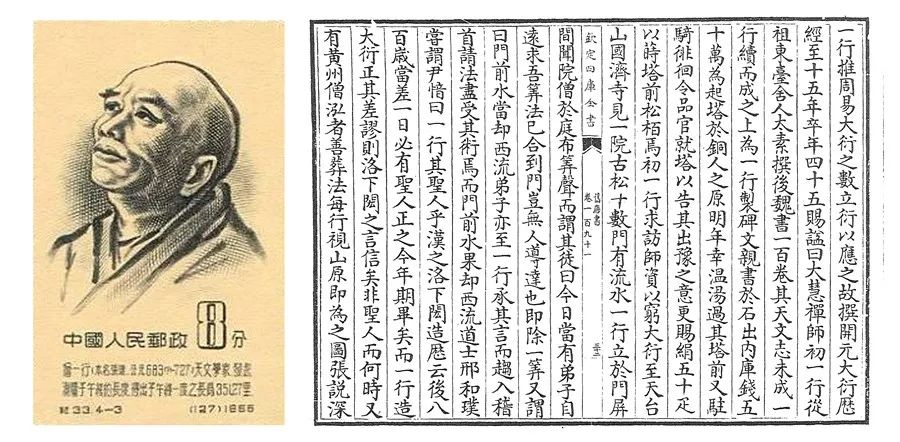 中國人民郵政 8分
僧一行(本名張遂,公元683年-727)天文學家.發起
測量子午綫的長度,得出子午綫一度之長為351.27里.
紀33.4-3 (127)1955
一行推周易大衍之數立衍以應之故撰開元大衍歴
經至十五年卒年四十五賜諡曰大慧禪師初一行從
祖東臺舍人太素撰後魏書一百卷其天文志未成一
行續而成之上為一行製碑文親書於石出内庫錢五
十萬為起塔於銅人之原明年幸温湯過其塔前又駐
騎徘徊令品官就塔以告其出豫之意更賜絹五十疋
以蒔塔前松栢焉初一行求訪師資以窮大衍至天台
山國濟寺見一院古松十數門有流水一行立於門屏
欽定四庫全書
舊唐書
卷一百九十一
間聞院僧於庭布筭聲而謂其徒曰今日當有弟子自
遠求吾筭法已合到門豈無人導達也即除一筭又謂
曰門前水當却西流弟子亦至一行承其言而趨入稽
首請法盡受其術焉而門前水果却西流道士邢和璞
嘗謂尹愔曰一行其聖人乎漢之洛下閎造歴云後八
百歳當差一日必有聖人正之今年期畢矣而一行造
大衍正其差謬則洛下閎之言信矣非聖人而何時又
有黄州僧泓者善葬法每行視山原即為之圖張説深